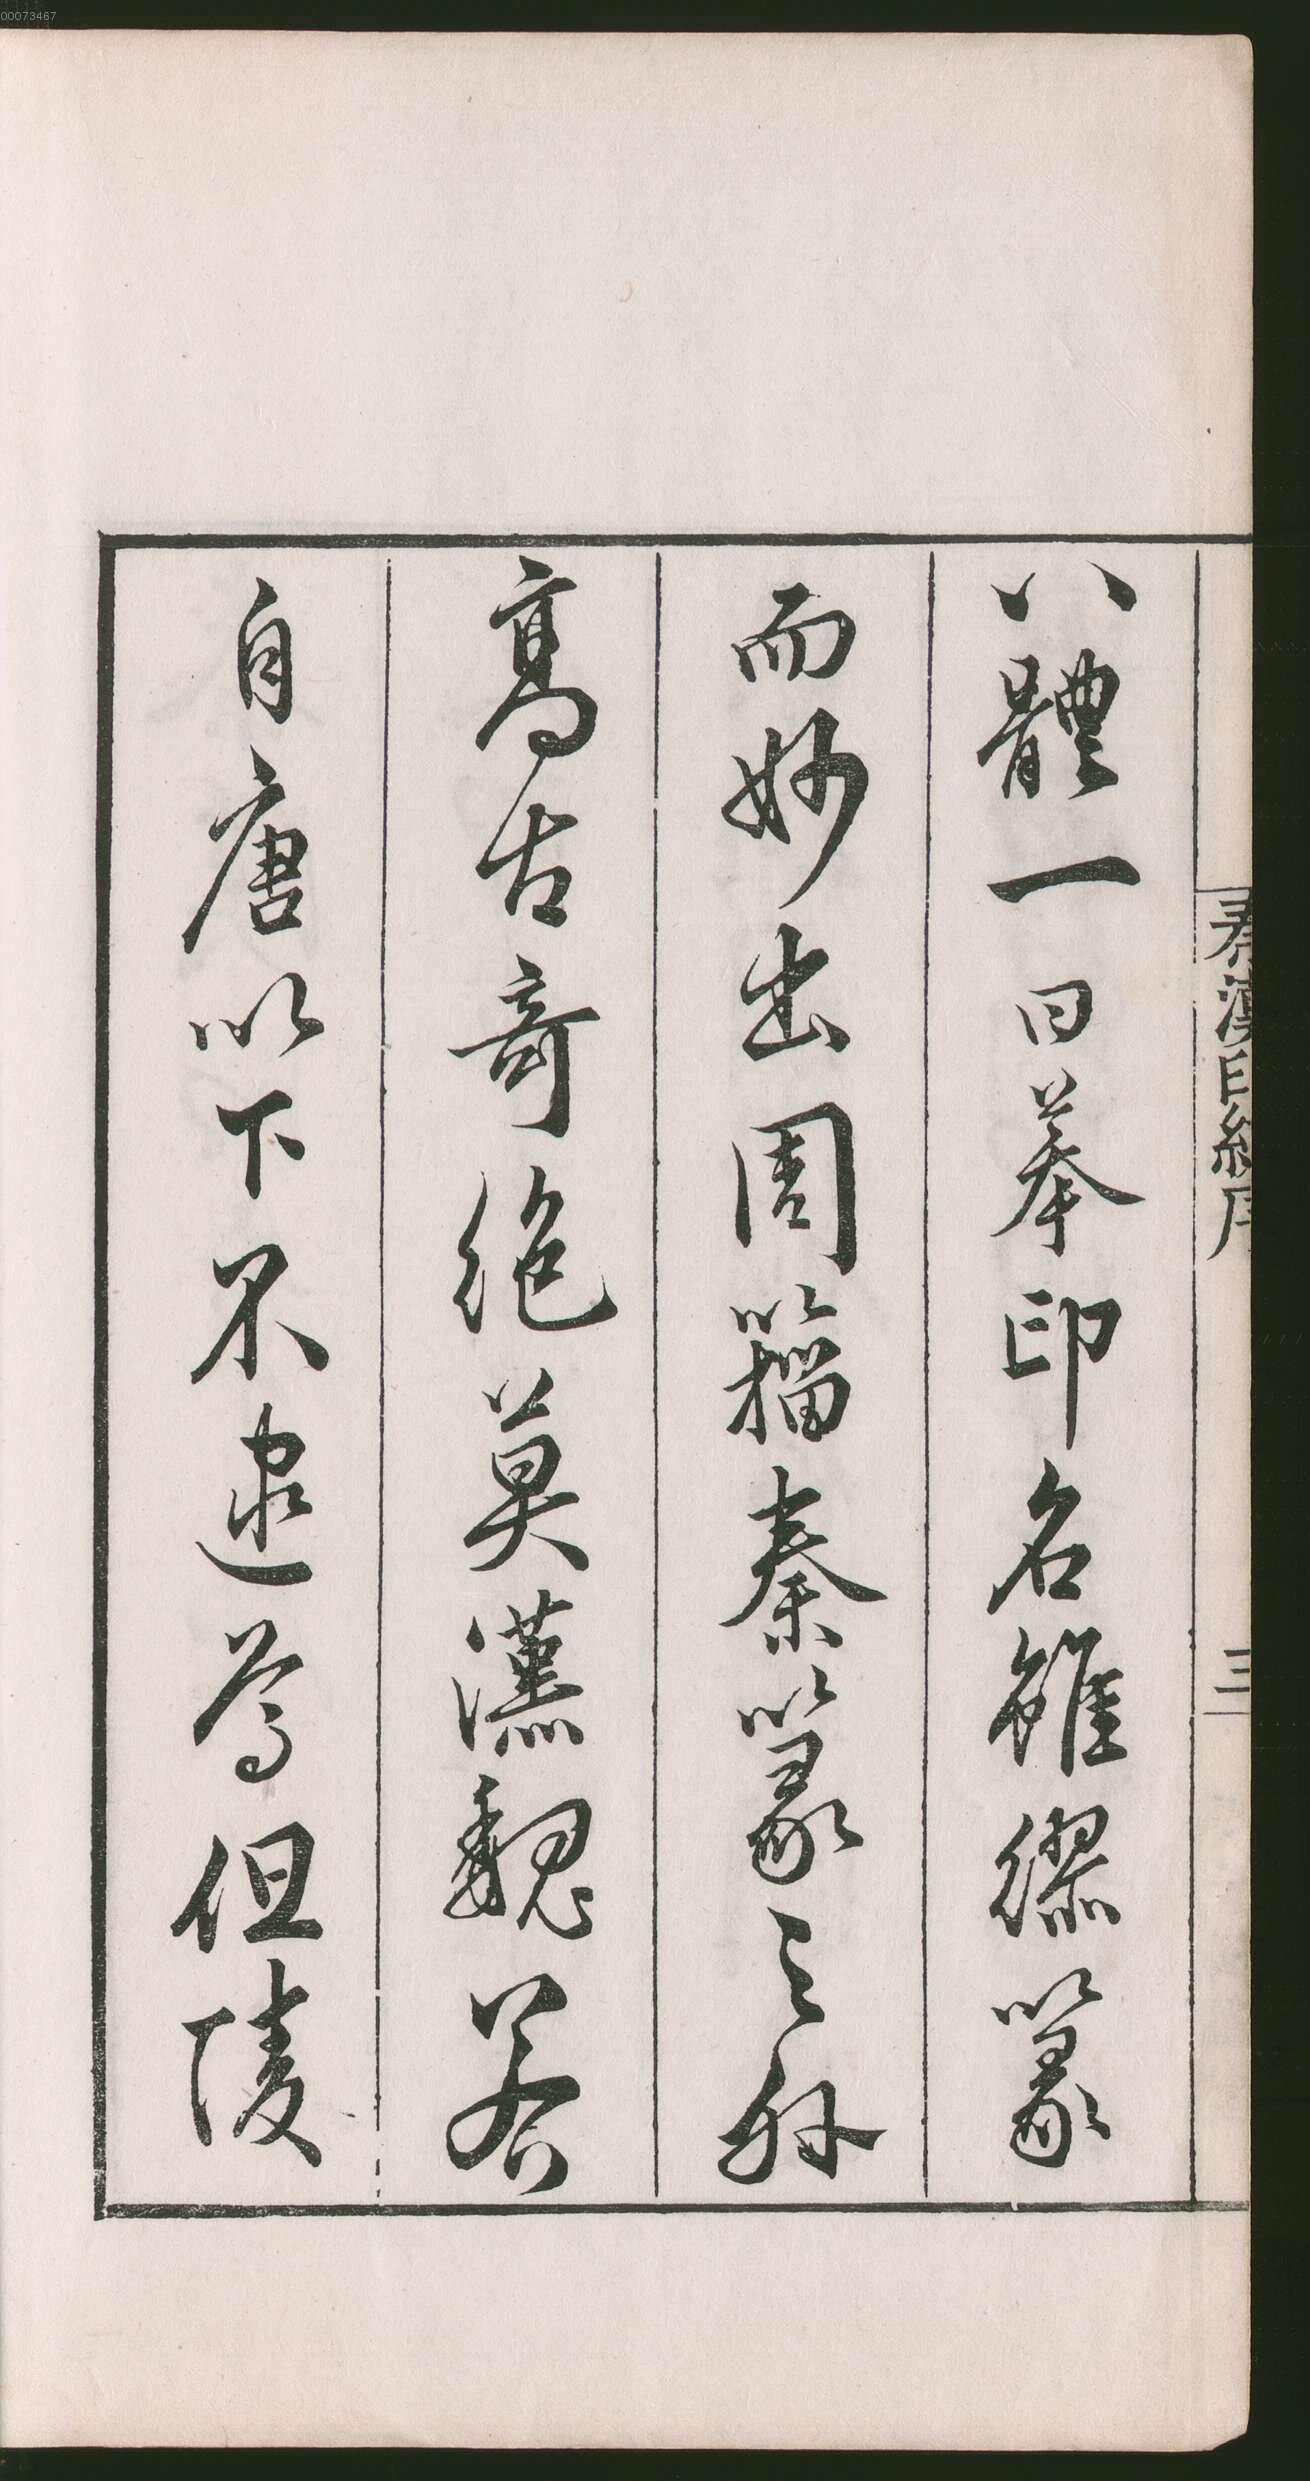 八體一曰摹印名雖繆篆
而妙出周籀秦篆之外
高古奇絶莫漢魏若
自唐以下不逮焉但陵
秦漢印統序
三
00073467